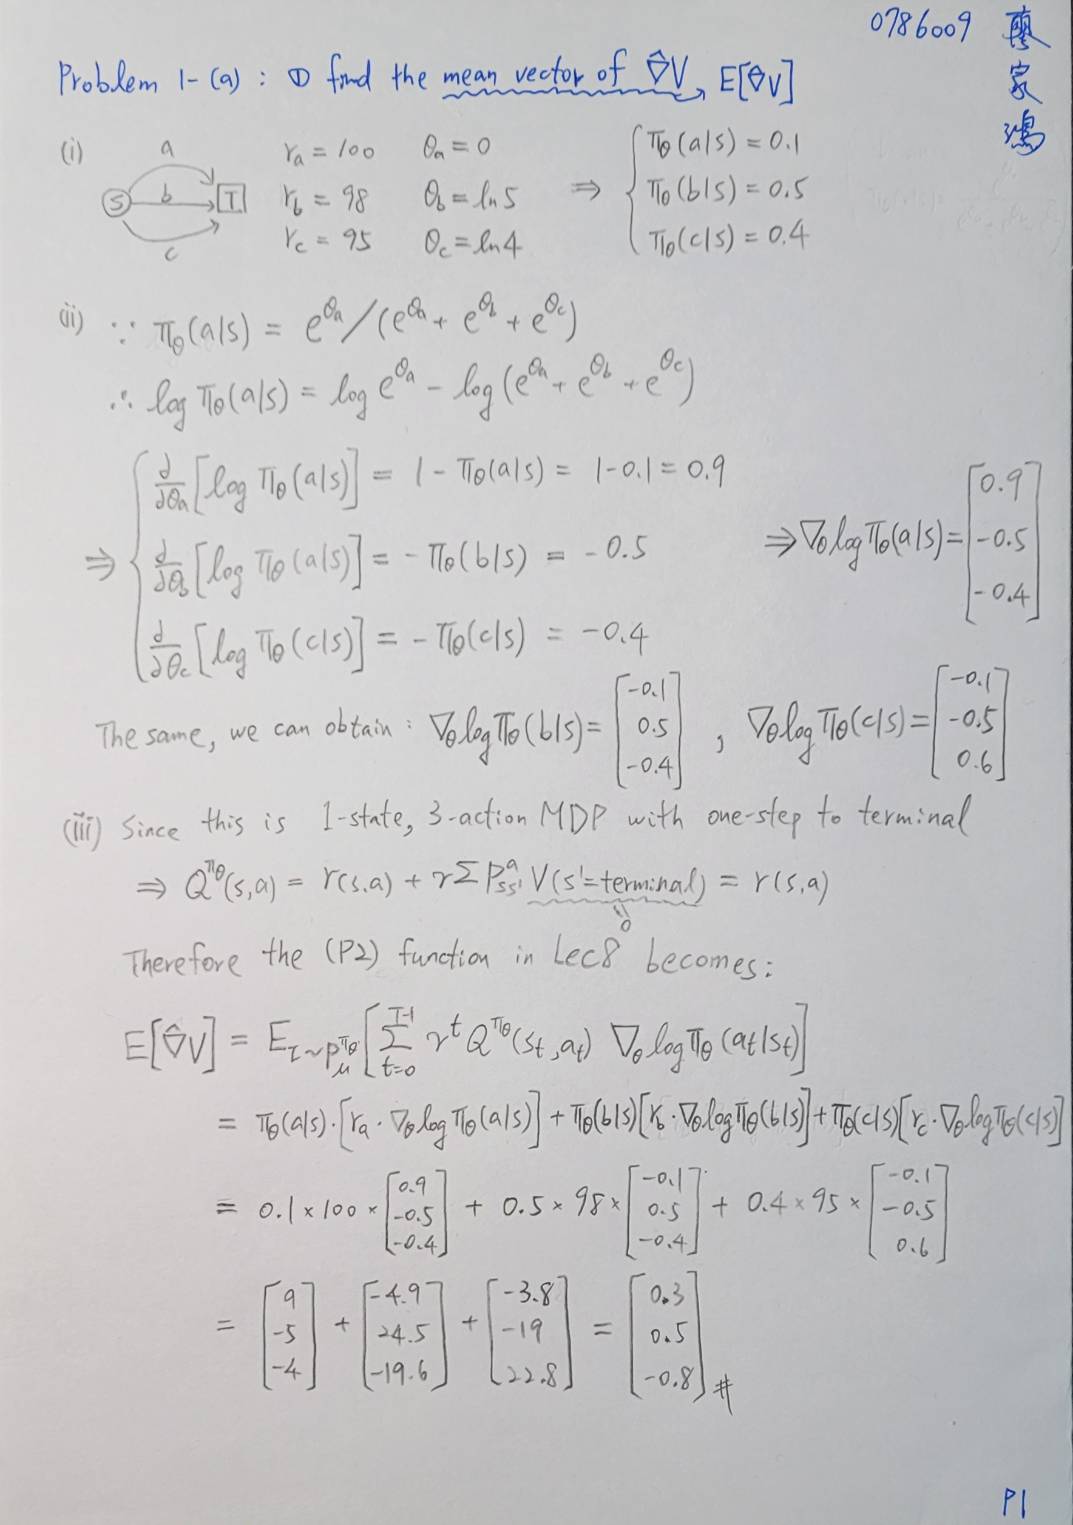 0786009 廖家鴻
Problem 1-(a) : ① find the mean vector of ∇̂V, E[∇̂V]
(i) a b c S T
r_a = 100 θ_a = 0 ⇒ π_θ(a|s) = 0.1
r_b = 98 θ_b = ln5 π_θ(b|s) = 0.5
r_c = 95 θ_c = ln4 π_θ(c|s) = 0.4
(ii) ∵ π_θ(a|s) = e^θa / (e^θa + e^θb + e^θc)
∴ log π_θ(a|s) = log e^θa - log(e^θa + e^θb + e^θc)
⇒ { ∂/∂θ_a [log π_θ(a|s)] = 1 - π_θ(a|s) = 1-0.1 = 0.9
∂/∂θ_b [log π_θ(a|s)] = - π_θ(b|s) = -0.5 ⇒ ∇_θ log π_θ(a|s) = [0.9 -0.5 -0.4]
∂/∂θ_c [log π_θ(c|s)] = - π_θ(c|s) = -0.4
The same, we can obtain : ∇_θ log π_θ(b|s) = [-0.1 0.5 -0.4] , ∇_θ log π_θ(c|s) = [-0.1 -0.5 0.6]
(iii) Since this is 1-state, 3-action MDP with one-step to terminal
⇒ Q^πθ(s,a) = r(s,a) + γ Σ P^a_ss' V(s'=terminal) = r(s,a)
0
Therefore the (P2) function in Lec8 becomes:
E[∇̂V] = E_τ~P_μ^πθ [ Σ_{t=0}^{T-1} γ^t Q^πθ(s_t, a_t) ∇_θ log π_θ(a_t|s_t) ]
= π_θ(a|s)·[r_a·∇_θ log π_θ(a|s)] + π_θ(b|s)[r_b·∇_θ log π_θ(b|s)] + π_θ(c|s)[r_c·∇_θ log π_θ(c|s)]
= 0.1 × 100 × [0.9 -0.5 -0.4] + 0.5 × 98 × [-0.1 0.5 -0.4] + 0.4 × 95 × [-0.1 -0.5 0.6]
= [9 -5 -4] + [-4.9 24.5 -19.6] + [-3.8 -19 22.8] = [0.3 0.5 -0.8] #
P1